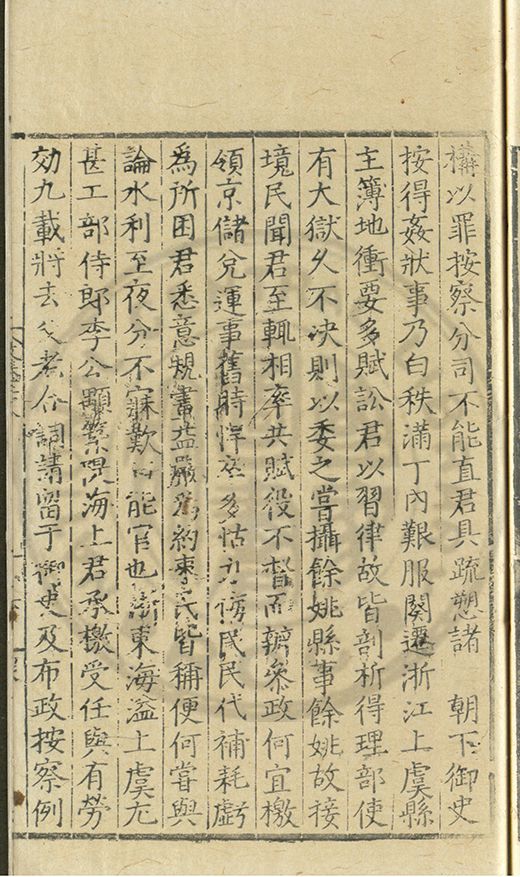 構以罪按察分司不能直君具疏愬諸 朝下御史
按得姦狀事乃白秩滿丁內艱服闋遷浙江上虞縣
主簿地衝要多賦訟君以習律故皆剖析得理部使
有大獄久不決則以委之嘗攝餘姚縣事餘姚故接
境民聞君至輒相率共賦役不督而辦參政何宜檄
領京儲兌運事舊時悍卒多怙力侮民民代補耗虧
為所困君悉意規畫益嚴為約束民皆稱便何嘗與
論水利至夜分不寐歎 能官也浙東海溢上虞尤
甚工部侍郎李公顒 海上君承檄受任與有勞
効九載將去父老 詞請留于御史及布政按察例